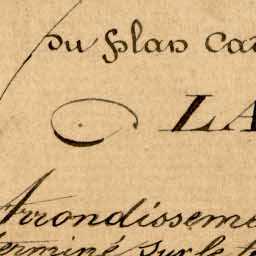 Du plan Ca
LA
Arrondisseme
Terminé sur le t